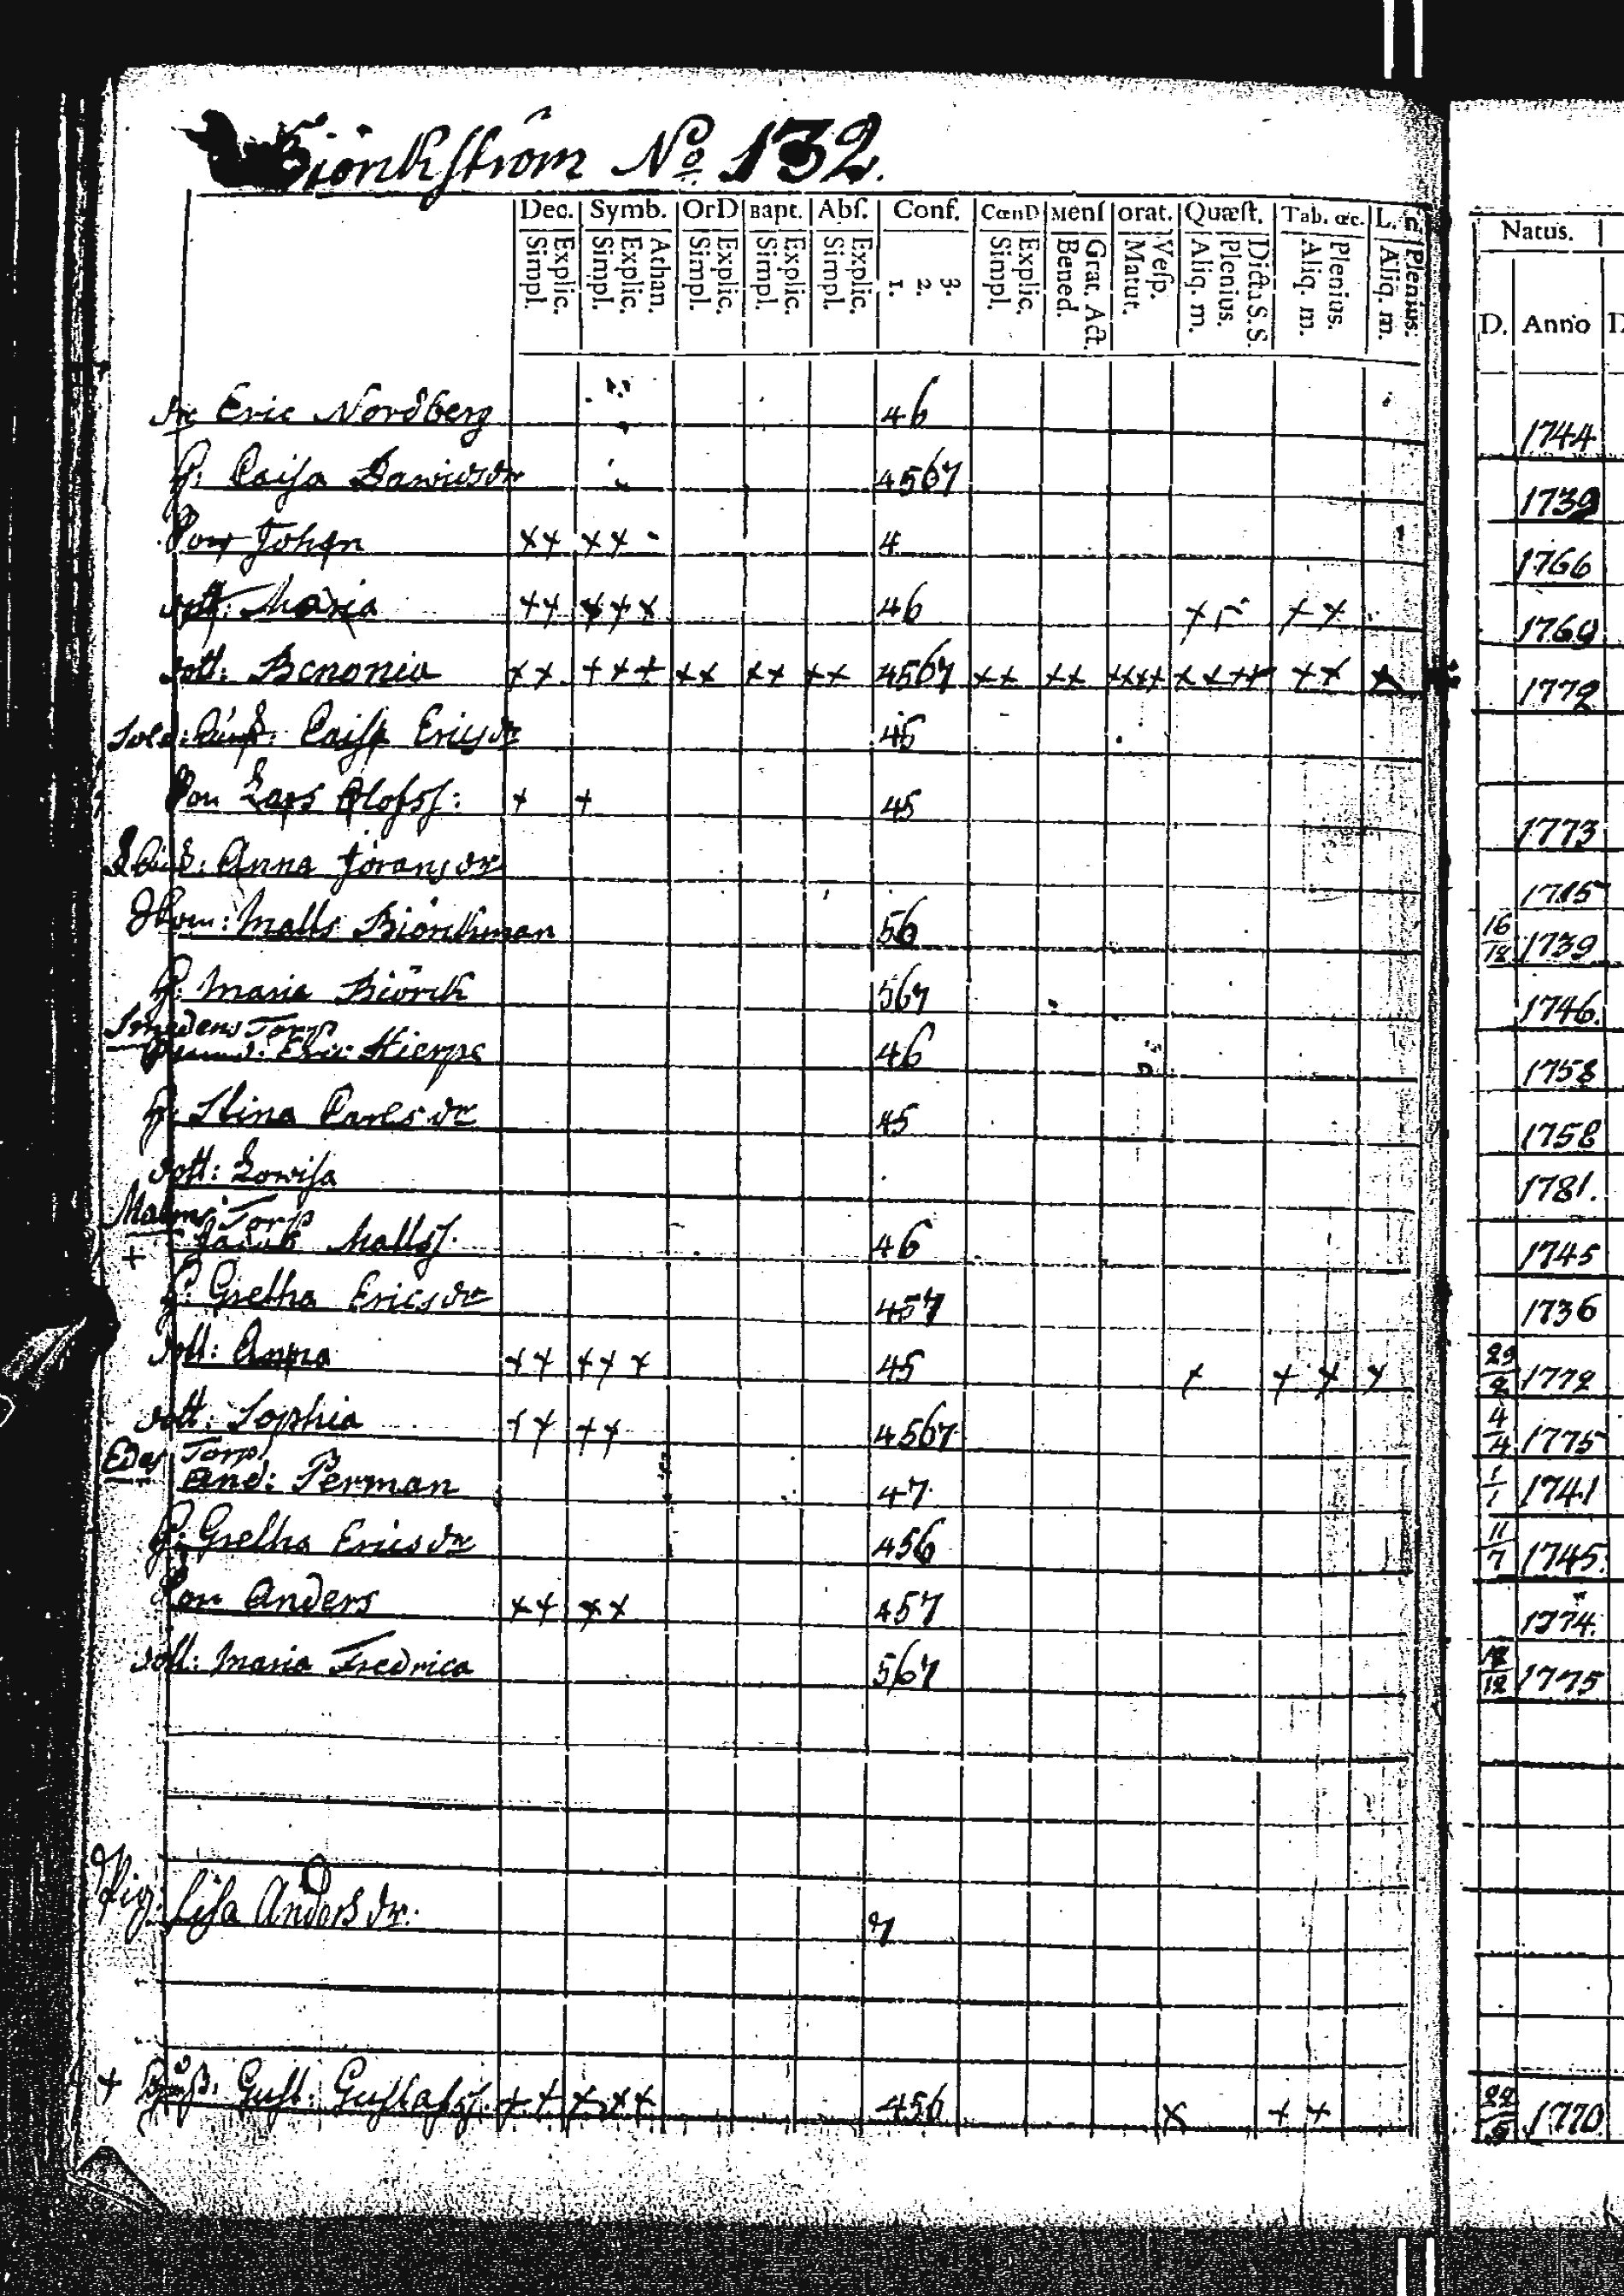 Biörckström No 132.
Dec. Symb. OrD Bapt. Abſ. Conf. CœnD Menſ orat. Quæſt. Tab. œc. L. n. Natus.
Simpl. Explic. Simpl. Explic. Athan. Simpl. Explic. Simpl. Explic. Simpl. Explic. 1. 2. 3. Simpl. Explic. Bened. Grat. Act. Matut. Veſp. Aliq. m. Plenius. Dicta S. S. Aliq. m. Plenius. Aliq. m. Plenius. D. Anno
Eric Nordberg 46 1744
h: Caisa 4567 1739
Son Johan ×× ×× 4 1766
dott: Maria ×× ××× 46 × ×× 1769
dott: Benonia ×× ××× ×× ×× ×× 4567 ×× ×× ×××× ×××× ×× × 1772
Sold: Caisa Ericsdr 45
Son Lars Olofss: + + 45 1773
Anna Göransdr 1715
Matts Biörckman 56 16/18 1739
h: Maria Biörck 567 1746.
Smedens Torp
Eric Hierpe 46 1758
h: Stina Carlsdr 45 1758
dott: Lovisa 1781.
Malms Torp
+ Jacob Mattss. 46 1745
h: Gretha Ericsdr 457 1736
dott: Anna ×× ××× 45 × × × × 29/2 1772
dott: Sophia ×× ×× 4567 4/4 1775
Edes Torp
And: Perman 47 1/1 1741
h: Gretha Ericsdr 456 11/7 1745.
Son Anders ×× ×× 457 1774.
dott: Maria Fredrica 567 1775
Pig: Lisa Andersdr. 7
+ Gust. Gustafss. ×× ××× 456 × ×× 1770.